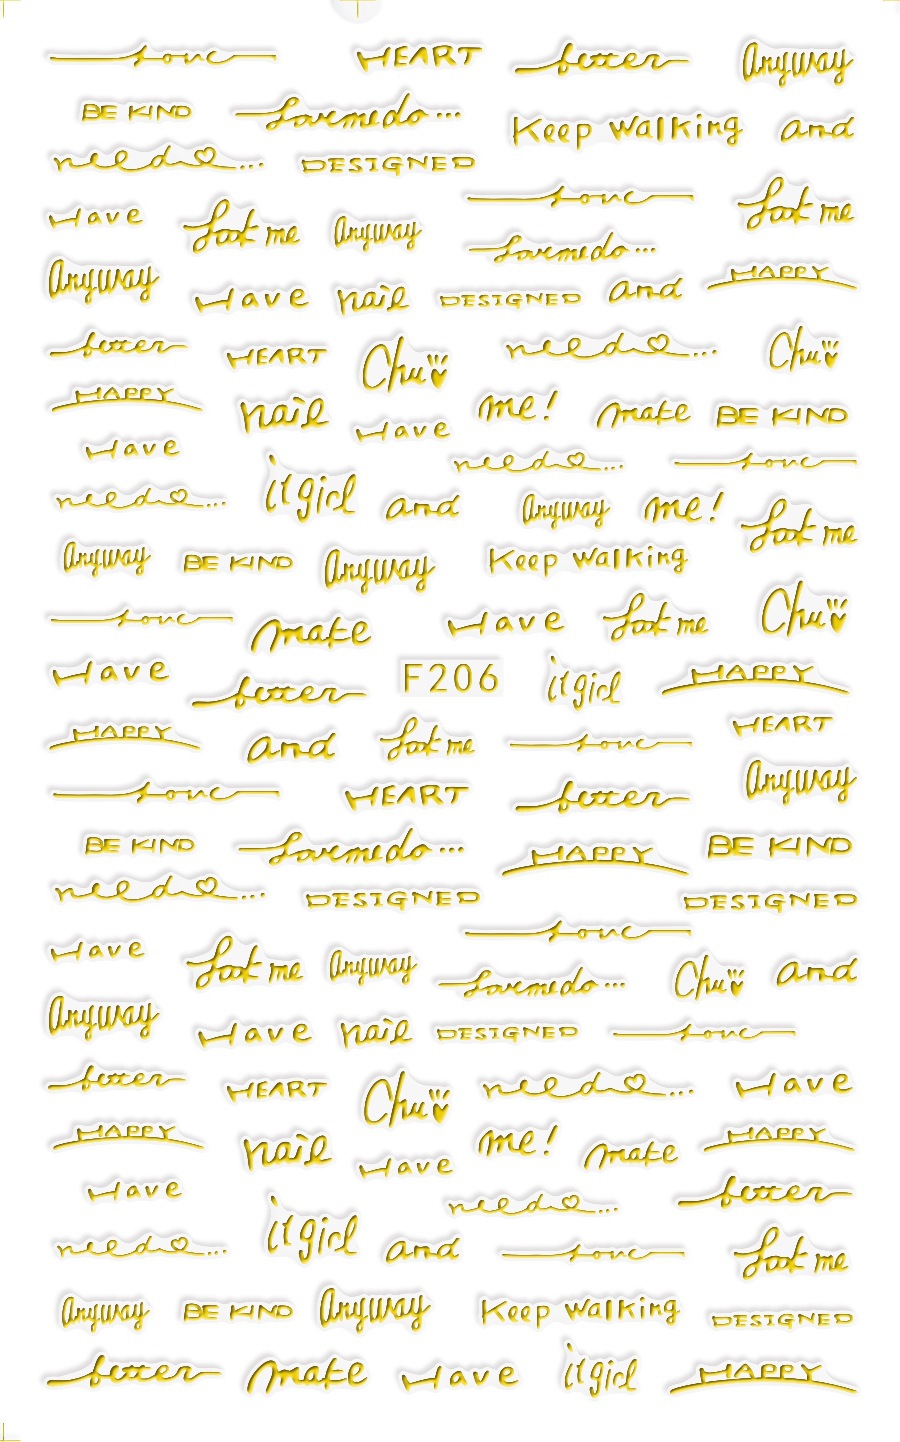 Love HEART better Anyway
BE KIND Love me do... Keep walking and
need... DESIGNED
Love Look me
Have Look me Anyway
Love me do...
Anyway HAPPY
Have nail DESIGNED and
better HEART Chu need... Chu
HAPPY nail Have me! make BE KIND
Have need... Love
need... it girl and Anyway me! Look me
Anyway BE KIND Anyway Keep walking
Love make Have Look me Chu
Have better F206 it girl HAPPY
HAPPY and Look me Love HEART
Love HEART better Anyway
BE KIND Love me do... HAPPY BE KIND
need... DESIGNED DESIGNED
Love
Have Look me Anyway Love me do... Chu and
Anyway Have nail DESIGNED Love
better HEART Chu need... Have
HAPPY nail Have me! make HAPPY
Have need... better
need... it girl and Love Look me
Anyway BE KIND Anyway Keep walking DESIGNED
better make Have it girl HAPPY